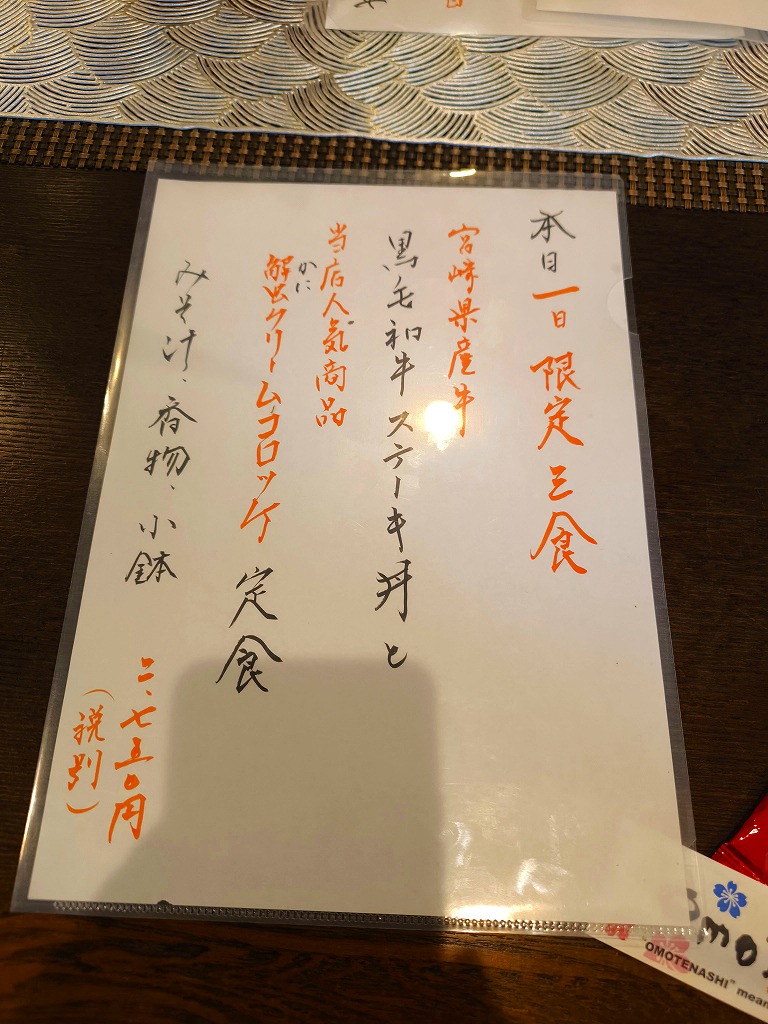 本日一日限定三食
宮崎県産牛
黒毛和牛ステーキ丼と
当店人気商品
かに
解虫クリームコロッケ定食
みそ汁、香物、小鉢
二、七五〇円
(税別)
OMOTENASHI" mean